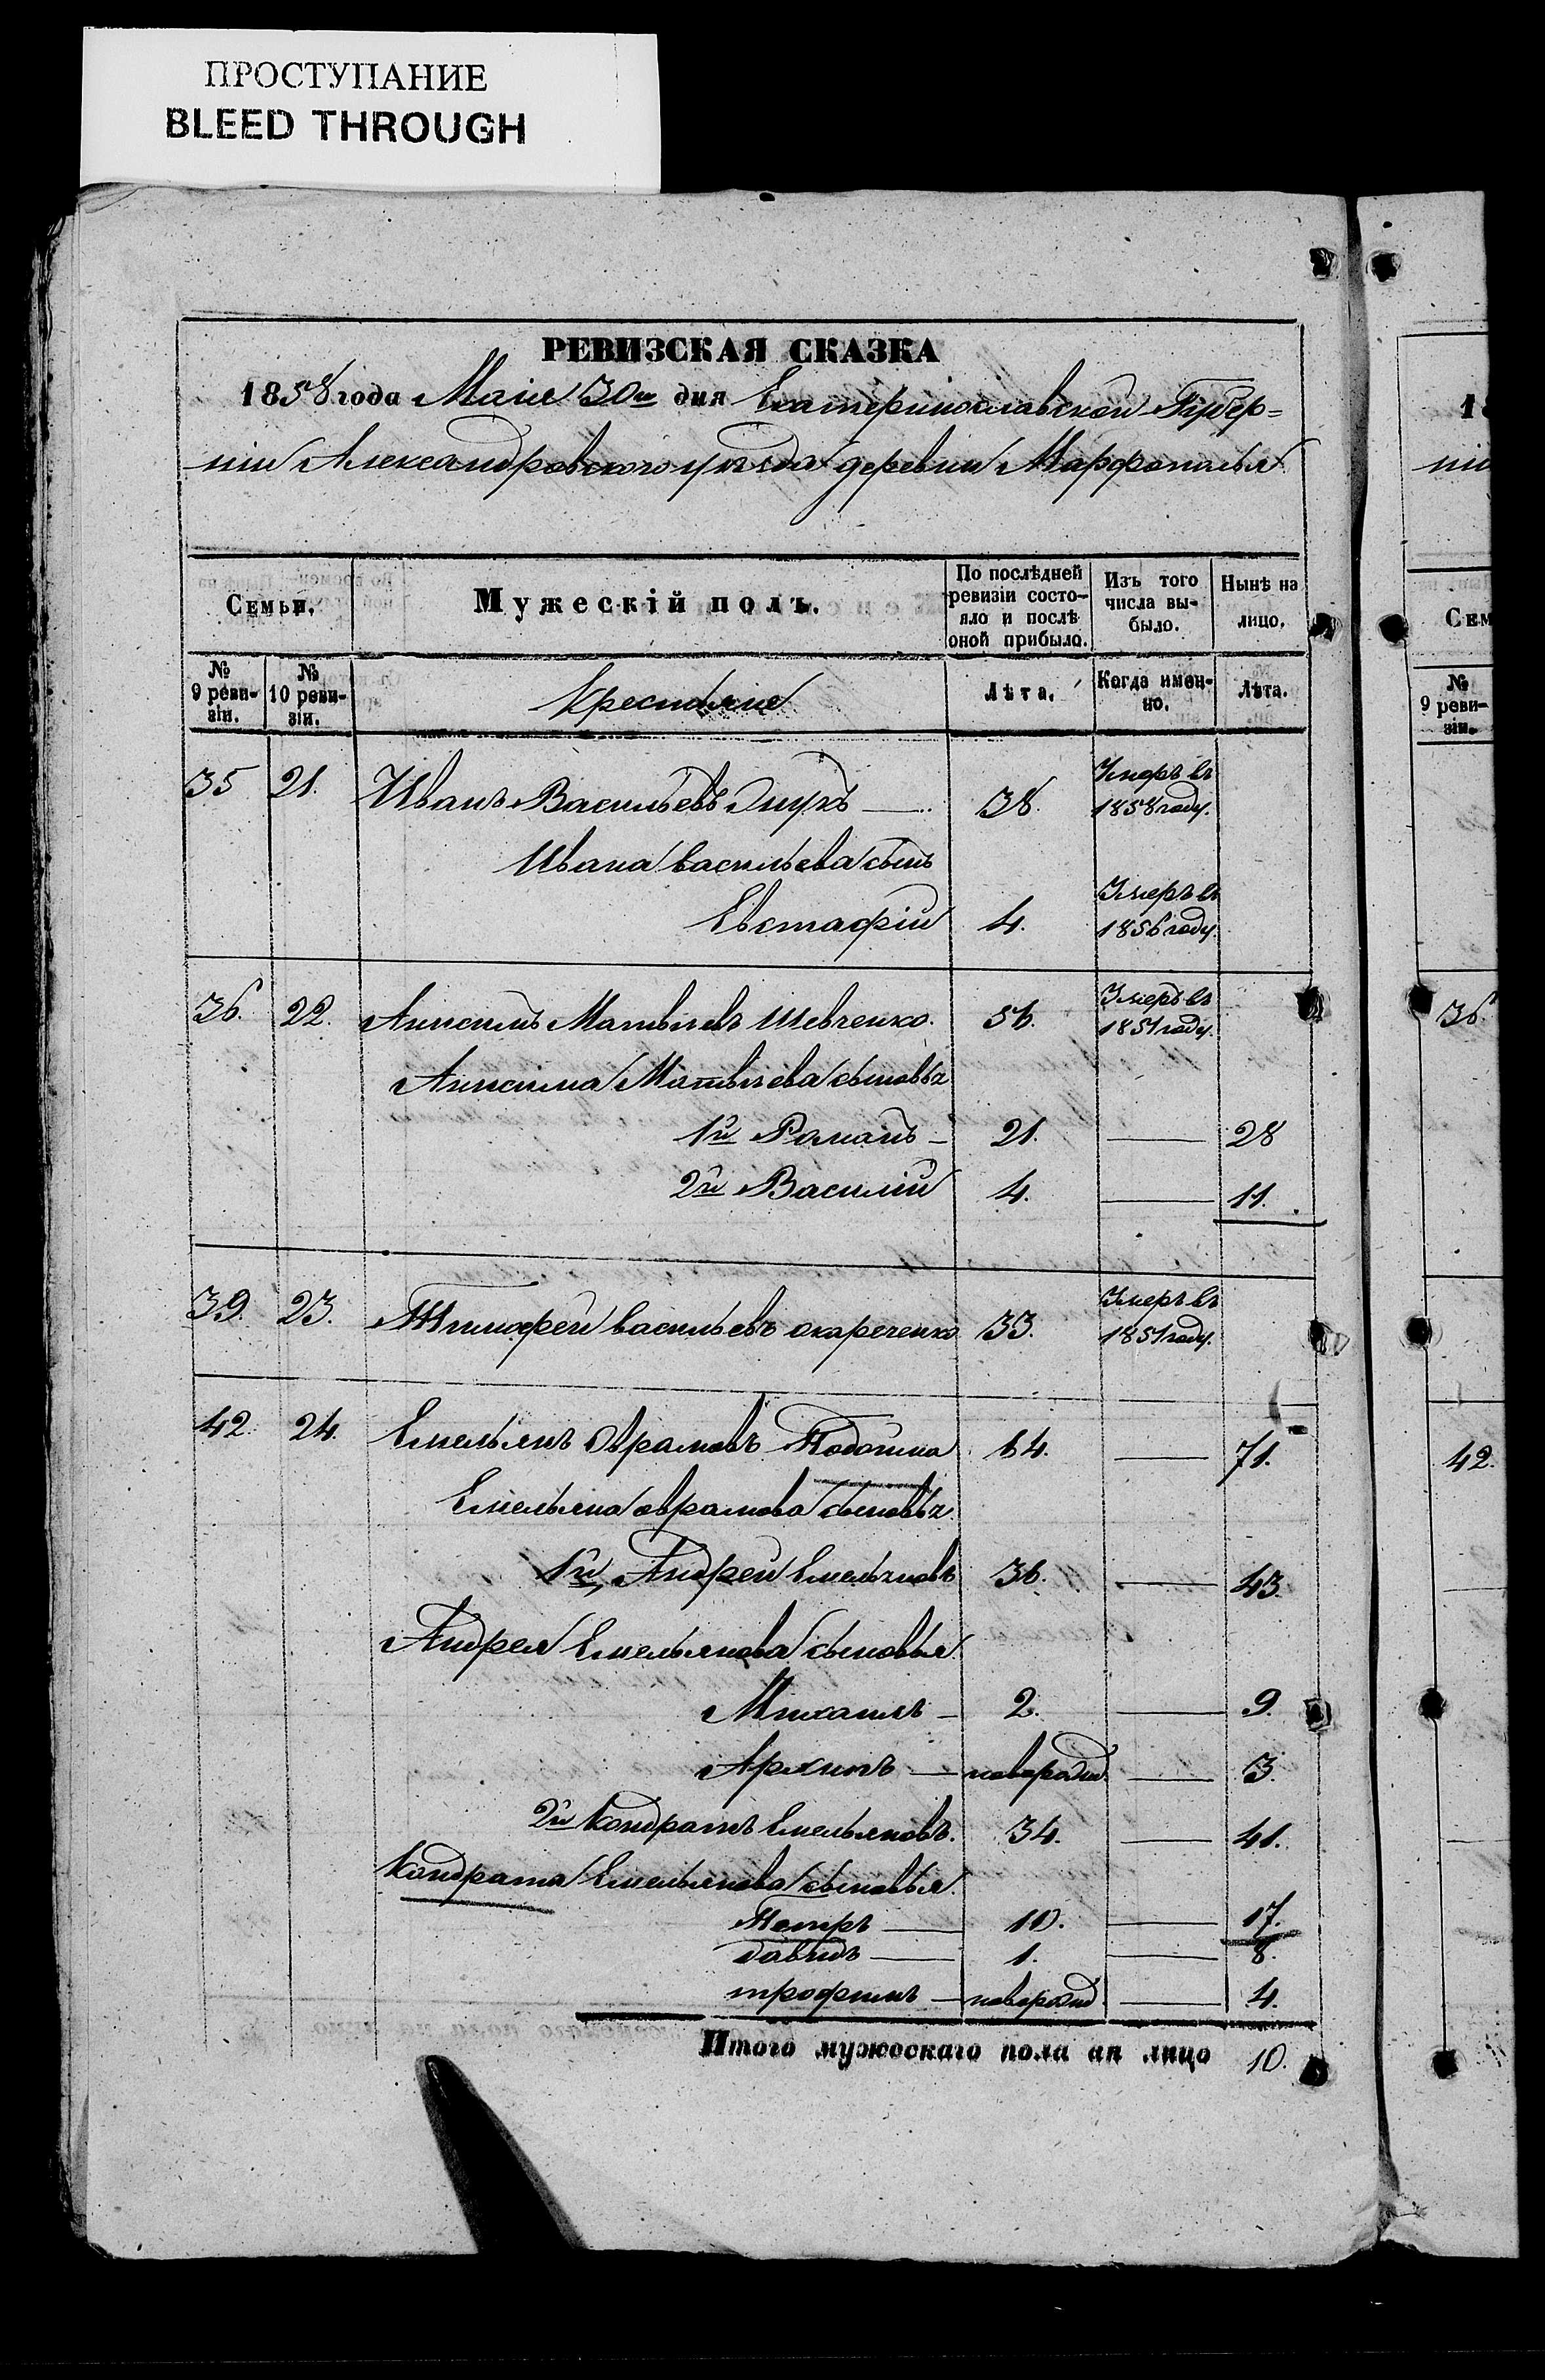 ПРОСТУПАНИЕ
BLEED THROUGH
РЕВИЗСКАЯ СКАЗКА
1858 года Маія 30го дня Екатеринославской Губер=
ніи Александровского уѣзда деревни Марфополья
Семьи.
Мужескій полъ.
По послѣдней ревизіи состояло и послѣ оной прибыло.
Изъ того числа выбыло.
Нынѣ на лицо.
№ 9 ревизіи.
№ 10 ревизіи.
Крестьяне
Лѣта.
Когда именно.
Лѣта.
35 21. Иванъ Васильевъ 38. Умеръ въ 1858 году.
Ивана васильева сынъ
Евстафій 4. Умеръ въ 1856 году.
36. 22. Анисимъ Матвѣевъ Шевченко. 56. Умеръ въ 1851 году.
Анисима Матвѣева сыновья
1й Романъ 21. — 28
2й Василій 4. — 11.
39. 23. Тимофей васильевъ 33. Умеръ въ 1851 году.
42 24. Емельянъ Аврамовъ 64. — 71.
Емельяна аврамова сыновья
1й Андрей Емельяновъ 36. — 43.
Андрея Емельянова сыновья
Михаилъ 2. — 9.
Архипъ — новорожд. — 3.
2й Кондратъ Емельяновъ. 34. — 41.
Кондрата Емельянова сыновья
Петръ — 10. — 17.
давидъ — 1. — 8.
трофимъ — новорожд — 4.
Итого мужоскаго пола ап лицо 10.
1
ніи
Сем
№
9 реви-
зіи.
36
42.